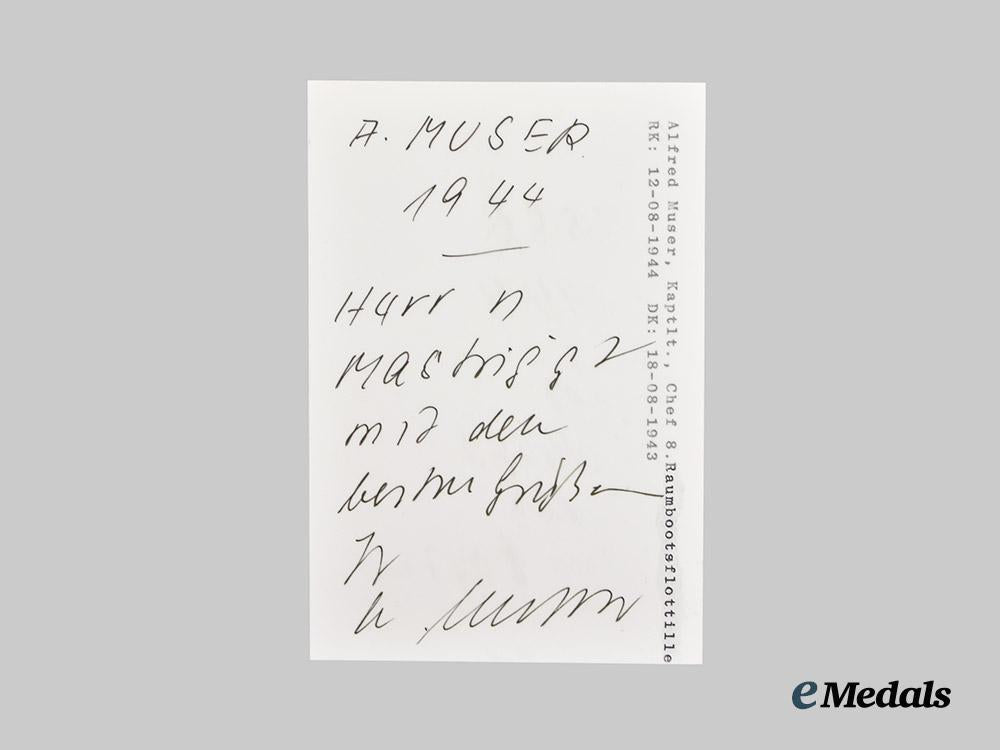 A. MUSER
1944
Herrn
Mastrigt
mit den
besten Grüßen
Ihr
A. Muser
Alfred Muser, Kaptlt., Chef 8.Raumbootsflottille
RK: 12-08-1944 DK: 18-08-1943
eMedals